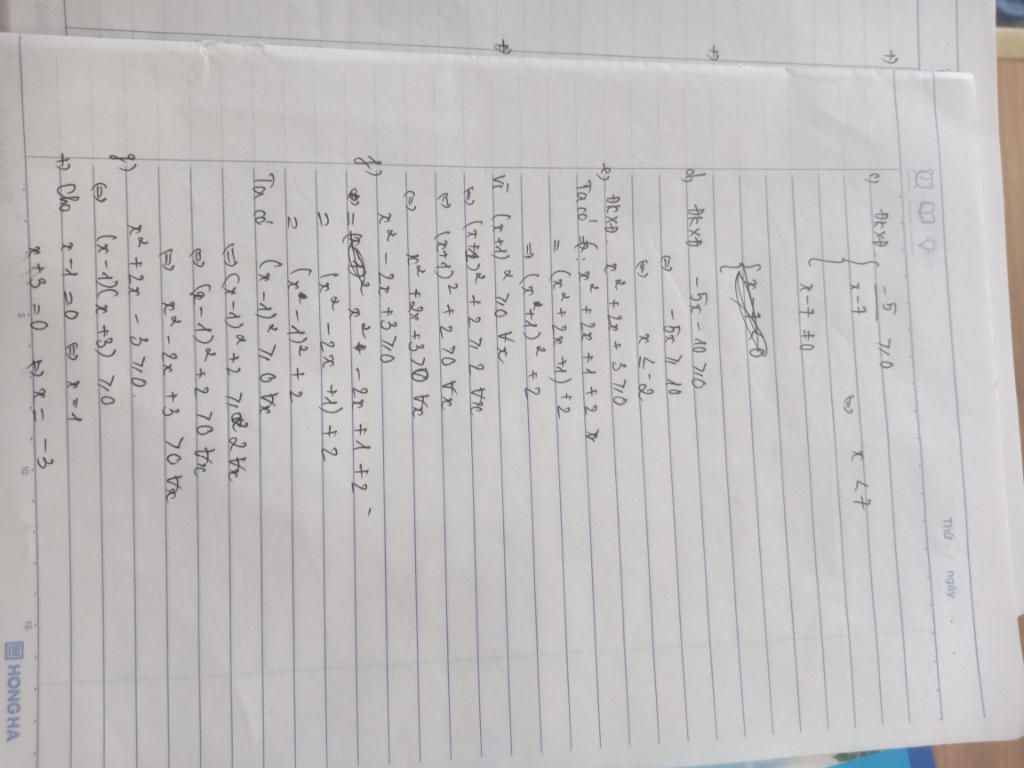 Thứ ngày
c) ĐKXĐ. { -5/x-7 ≥ 0
x-7 ≠ 0
⇔ x < 7
d) ĐKXĐ -5x - 10 ≥ 0
⇔ -5x ≥ 10
⇔ x ≤ -2
e) ĐKXĐ. x² + 2x + 3 ≥ 0
Ta có x² + 2x + 1 + 2
= (x² + 2x + 1) + 2
= (x² + 1)² + 2
Vì (x+1)² ≥ 0 ∀x
⇔ (x+1)² + 2 ≥ 2 ∀x
⇔ (x+1)² + 2 > 0 ∀x
⇔ x² + 2x + 3 > 0 ∀x
f) x² - 2x + 3 ≥ 0
= x² - 2x + 1 + 2
= (x² - 2x + 1) + 2
= (x - 1)² + 2
Ta có (x - 1)² ≥ 0 ∀x
⇔ (x - 1)² + 2 ≥ 2 ∀x
⇔ (x - 1)² + 2 > 0 ∀x
⇔ x² - 2x + 3 > 0 ∀x
g) x² + 2x - 3 ≥ 0.
⇔ (x - 1)(x + 3) ≥ 0
+) Cho x - 1 = 0 ⇔ x = 1
x + 3 = 0 ⇔ x = -3
5 10 15
HONG HA